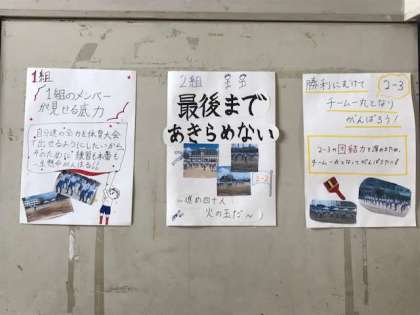 1組
1組のメンバー
が見せる底力
自分達の全力を体育大会
で出せるようにしたいから、
そのために練習も本番も
2組
最後まで
あきらめない
2-2
〜進め四十人
火の玉だ〜
勝利にむけて
2-3
チーム一丸となり
がんばろう!
2-3の団結力を深めるため、
チーム一丸となってがんばりたい!!